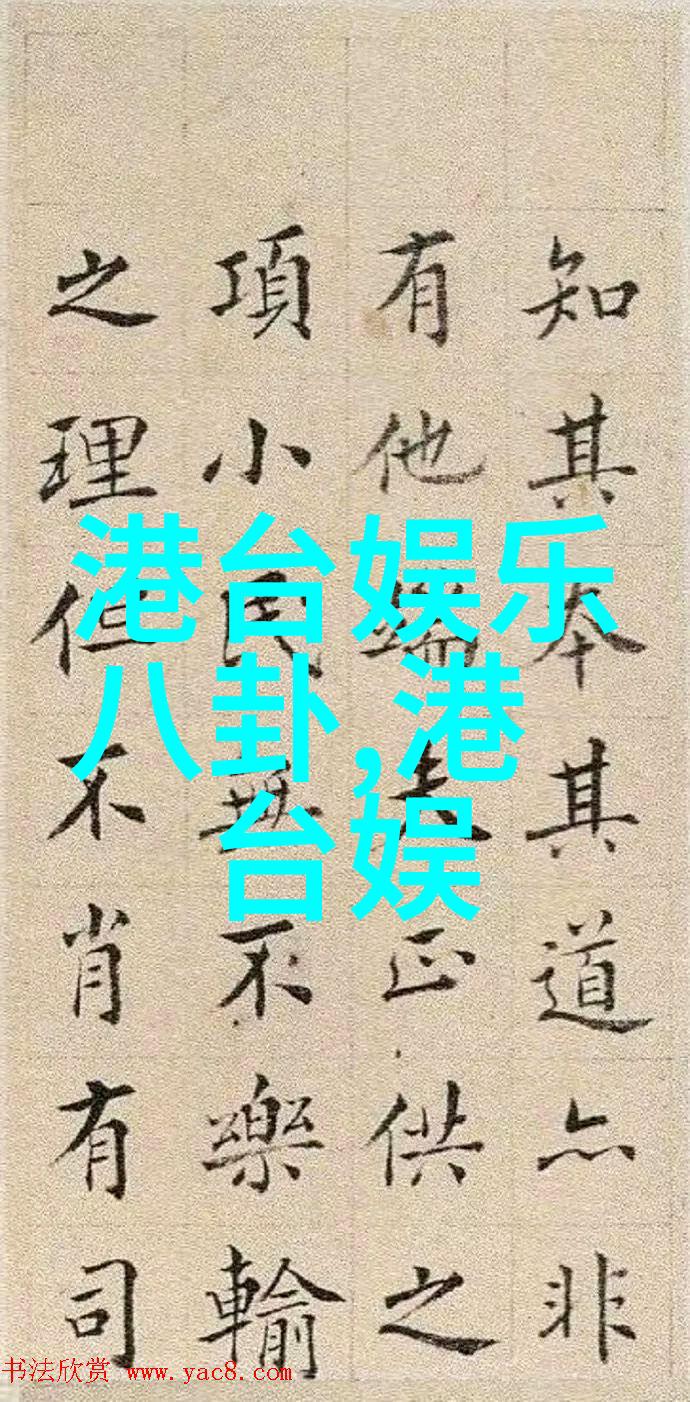 知其本其道亦非
有他端夫正供之
項小民無不樂輸
之理但不肖有司
港台娱乐
八卦,港
台娱
书法欣赏 www.yac8.com